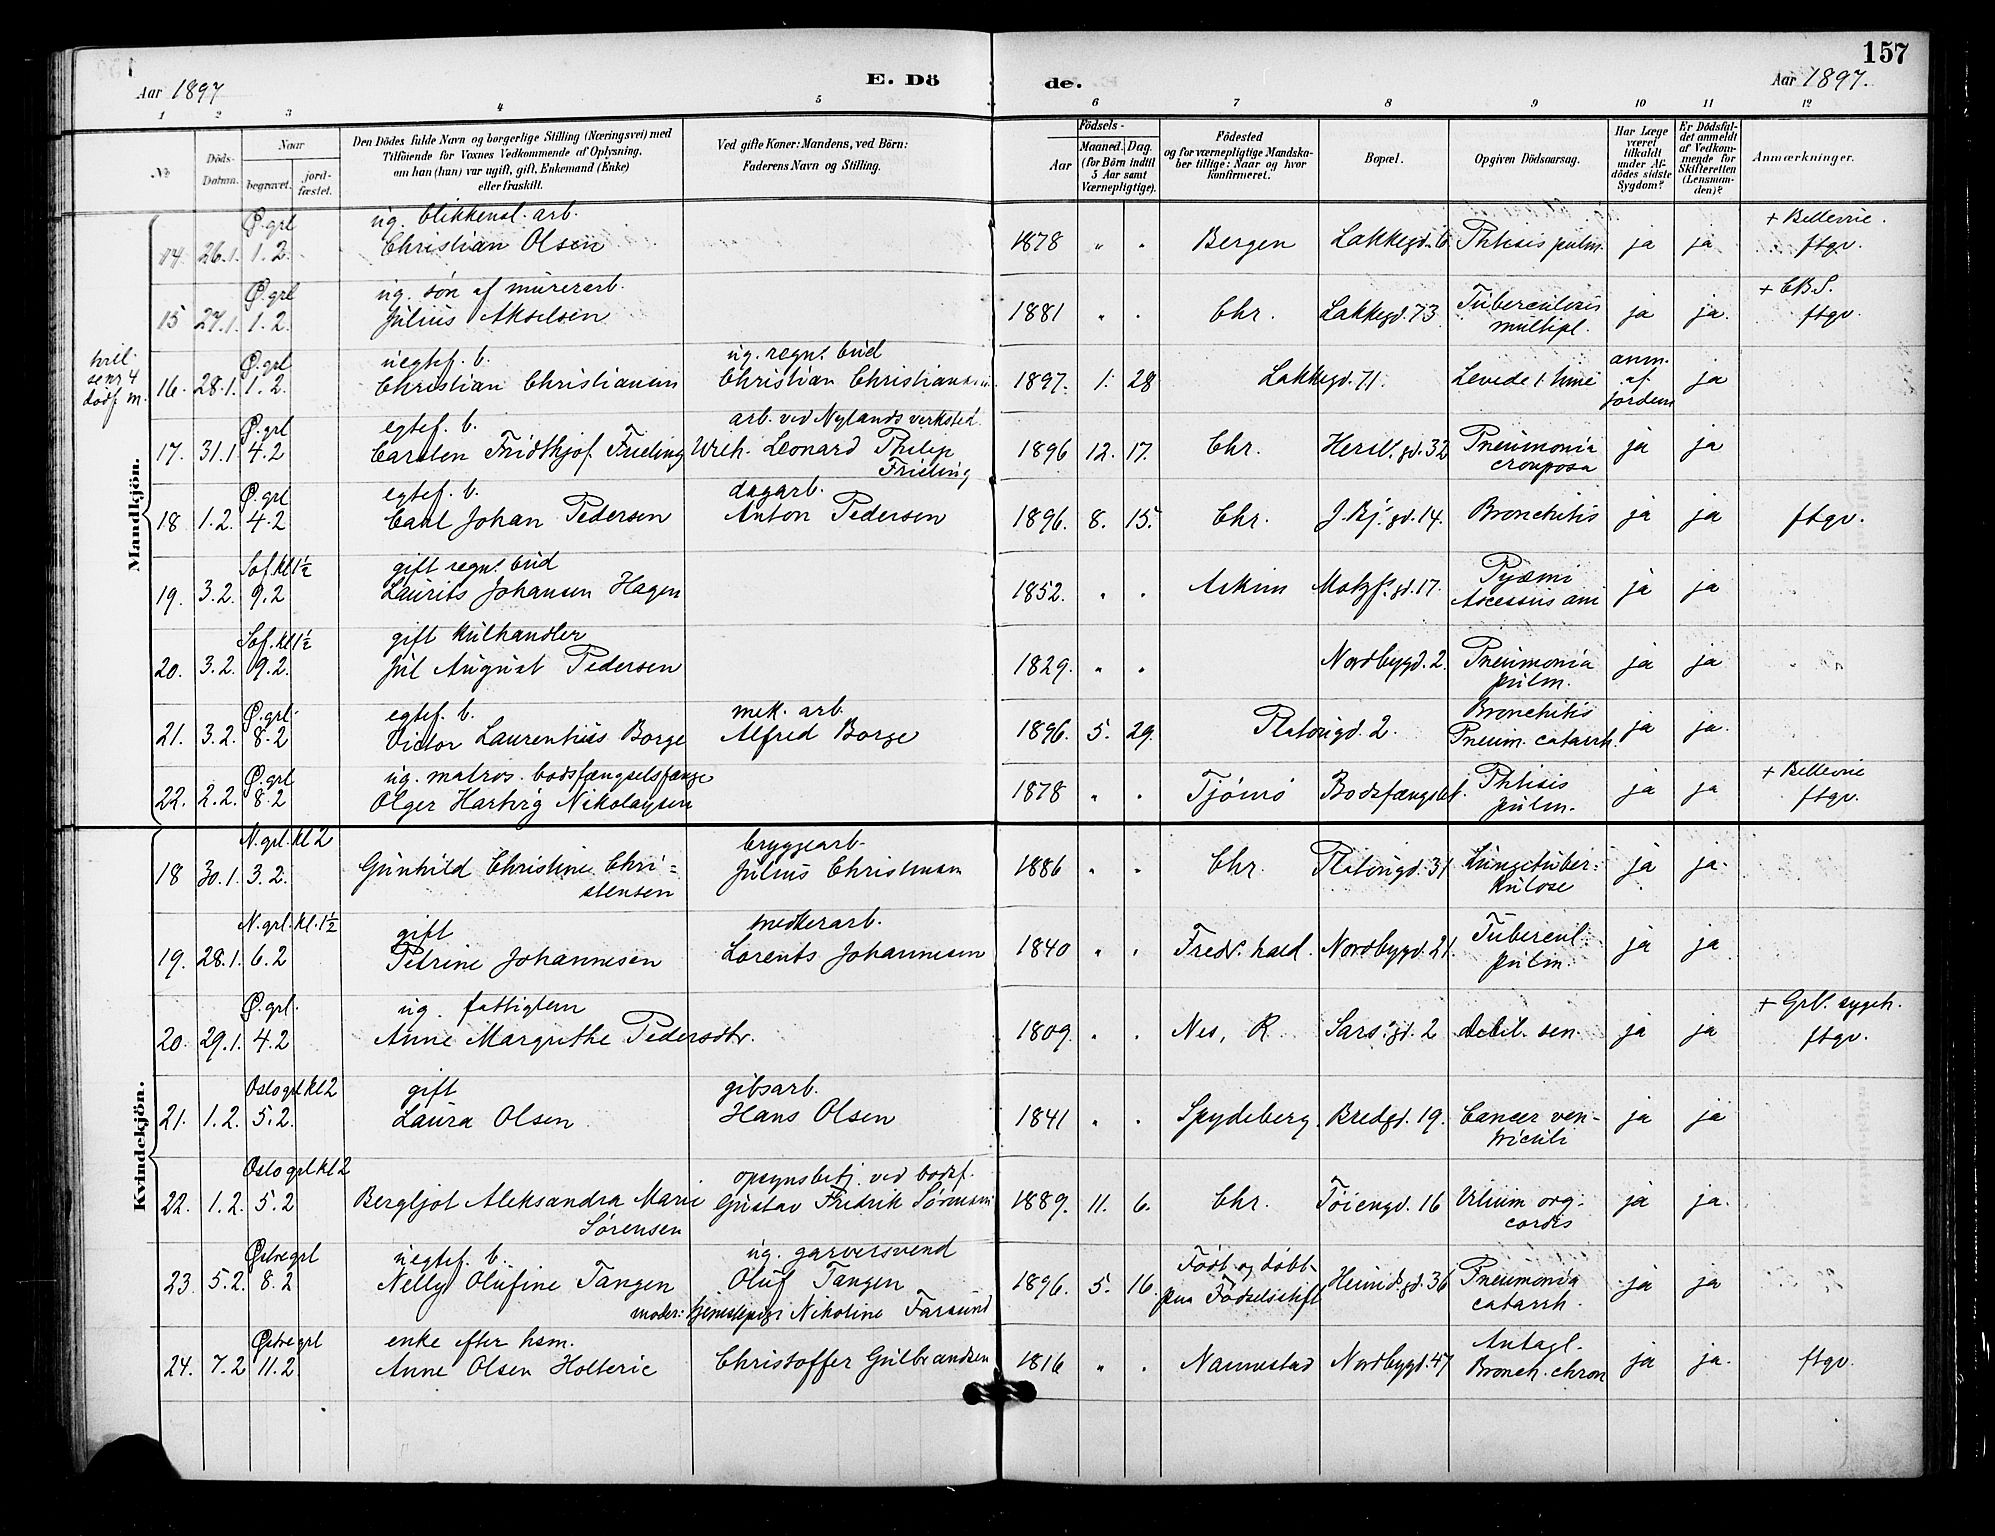 157
Aar 1897
E. Dö
de.
Aar 1897.
1 2 3 4 5 6 7 8 9 10 11 12
No
Döds-Datum.
Naar
begravet.
jord-fæstet.
Den Dödes fulde Navn og borgerlige Stilling (Næringsvei) med
Tilföiende for Voxnes Vedkommende af Oplysning,
om han (hun) var ugift, gift, Enkemand (Enke)
eller fraskilt.
Ved gifte Koner: Mandens, ved Börn:
Faderens Navn og Stilling.
Födsels-
Aar
Maaned. Dag.
(for Börn indtil
5 Aar samt
Værnepligtige).
Födested
og for værnepligtige Mandska-
ber tillige: Naar og hvor
konfirmeret.
Bopæl.
Opgiven Dödsaarsag.
Har Læge
været
tilkaldt
under Af-
dödes sidste
Sygdom?
Er Dödsfal-
det anmeldt
af Vedkom-
mende for
Skifteretten
(Lensman-
den)?
Anmærkninger.
Mandkjön.
Ø. grl ug. blikkensl. arb. + Bellevue.
14. 26.1. 1.2. Christian Olsen 1878 " " Bergen Lakkegd. 6 Phtisis pulm. ja ja ftgv.
Ø. grl ug. søn af murerarb. + CBS.
15 27.1. 1.2. Julius Akselsen 1881 " " Chr. Lakkegd. 73 Tuberculosis multipl. ja ja. ftgv.
Ø. grl uegtef. b. ug. regnt. bud
16. 28.1. 1.2. Christian Christiansen Christian Christiansen 1897. 1. 28 Lakkegd. 71. Levede 1 time anm. af jordem ja
Ø. grl egtef. b. arb. ved Nylands verksted.
17. 31.1 4.2 Carsten Fridthjof Frieling Wilh. Leonard Philip Frieling 1896 12. 17. Chr. Hersl. gd. 32 Pneumonia crouposa ja ja
Ø. grl egtef. b. dagarb.
18 1.2. 4.2 Carl Johan Pedersen Anton Pedersen 1896. 8. 15. Chr. J. Bj. gd. 14. Bronchitis ja ja ftgv.
Sof. kl 1½ gift regnt. bud
19. 3.2. 9.2 Laurits Johansen Hagen 1852. " " Askim Motzf. gd. 17. Pyæmi Ascessus ani ja ja
Sof. kl 1½ gift kulhandler
20. 3.2. 9.2. Jul August Pedersen 1829. " " Nordbygd. 2. Pneumonia pulm. ja ja
Ø. grl. egtef. b. mek. arb.
21. 3.2. 8.2 Victor Laurentius Borge Alfred Borge 1896. 5. 29. Platousgd. 2. Bronchitis Pneum. catarrh. ja ja.
Ø. grl ug. matros. bodsfængselsfange + Bellevue
22. 2.2. 8.2 Olger Hartvig Nikolaysen 1878 " " Tjømø Bodsfængslet. Phtisis pulm. ja ja ftgv.
Kvindekjön.
N. grl. kl 2 bryggearb.
18 30.1. 3.2. Gunhild Christine Christensen Julius Christensen 1886 " " Chr. Platousgd. 31 Lungetuberkulose ja ja.
N. grl. kl. 1½ gift
19. 28.1. 6.2 Petrine Johannesen Lorents Johannesen 1840 " " Fredr. hald. Nordbygd. 21. Tubercul. pulm. ja ja
Ø. grl. ug. fattiglem + Grl. sygeh.
20. 29.1. 4.2 Anne Margrethe Pedersdtr. 1809. " " Nes, R. Sars' gd. 2 debil. sen. ja ja ftgv.
Oslo grl kl 2 gift gibsarb.
21. 1.2. 5.2. Laura Olsen Hans Olsen 1841 " " Spydeberg. Bredgd. 19. Cancer ventriculi ja ja
Oslo grl kl 2 opsynsbetj. ved bodsf.
22. 1.2. 5.2 Bergljot Aleksandra Marie Sørensen Gustav Fredrik Sørensen 1889. 11. 6. Chr. Tøiengd. 16 Vitium org. cordis ja ja.
Østre grl uegtef. b. ug. garversvend
23. 5.2. 8.2 Nelly Olufine Tangen Oluf Tangen 1896. 5. 16. Født og døbt paa Fødselsstift Heimds. gd. 36 Pneumonia catarrh. ja ja
moder: tjenestepige Nikoline Farsund
Østre grl enke efter hsm.
24. 7.2 11.2 Anne Olsen Holteric Christoffer Gulbrandsen 1816 " " Nannestad Nordbygd. 47 Bronch. chron ja ja. ftgv.